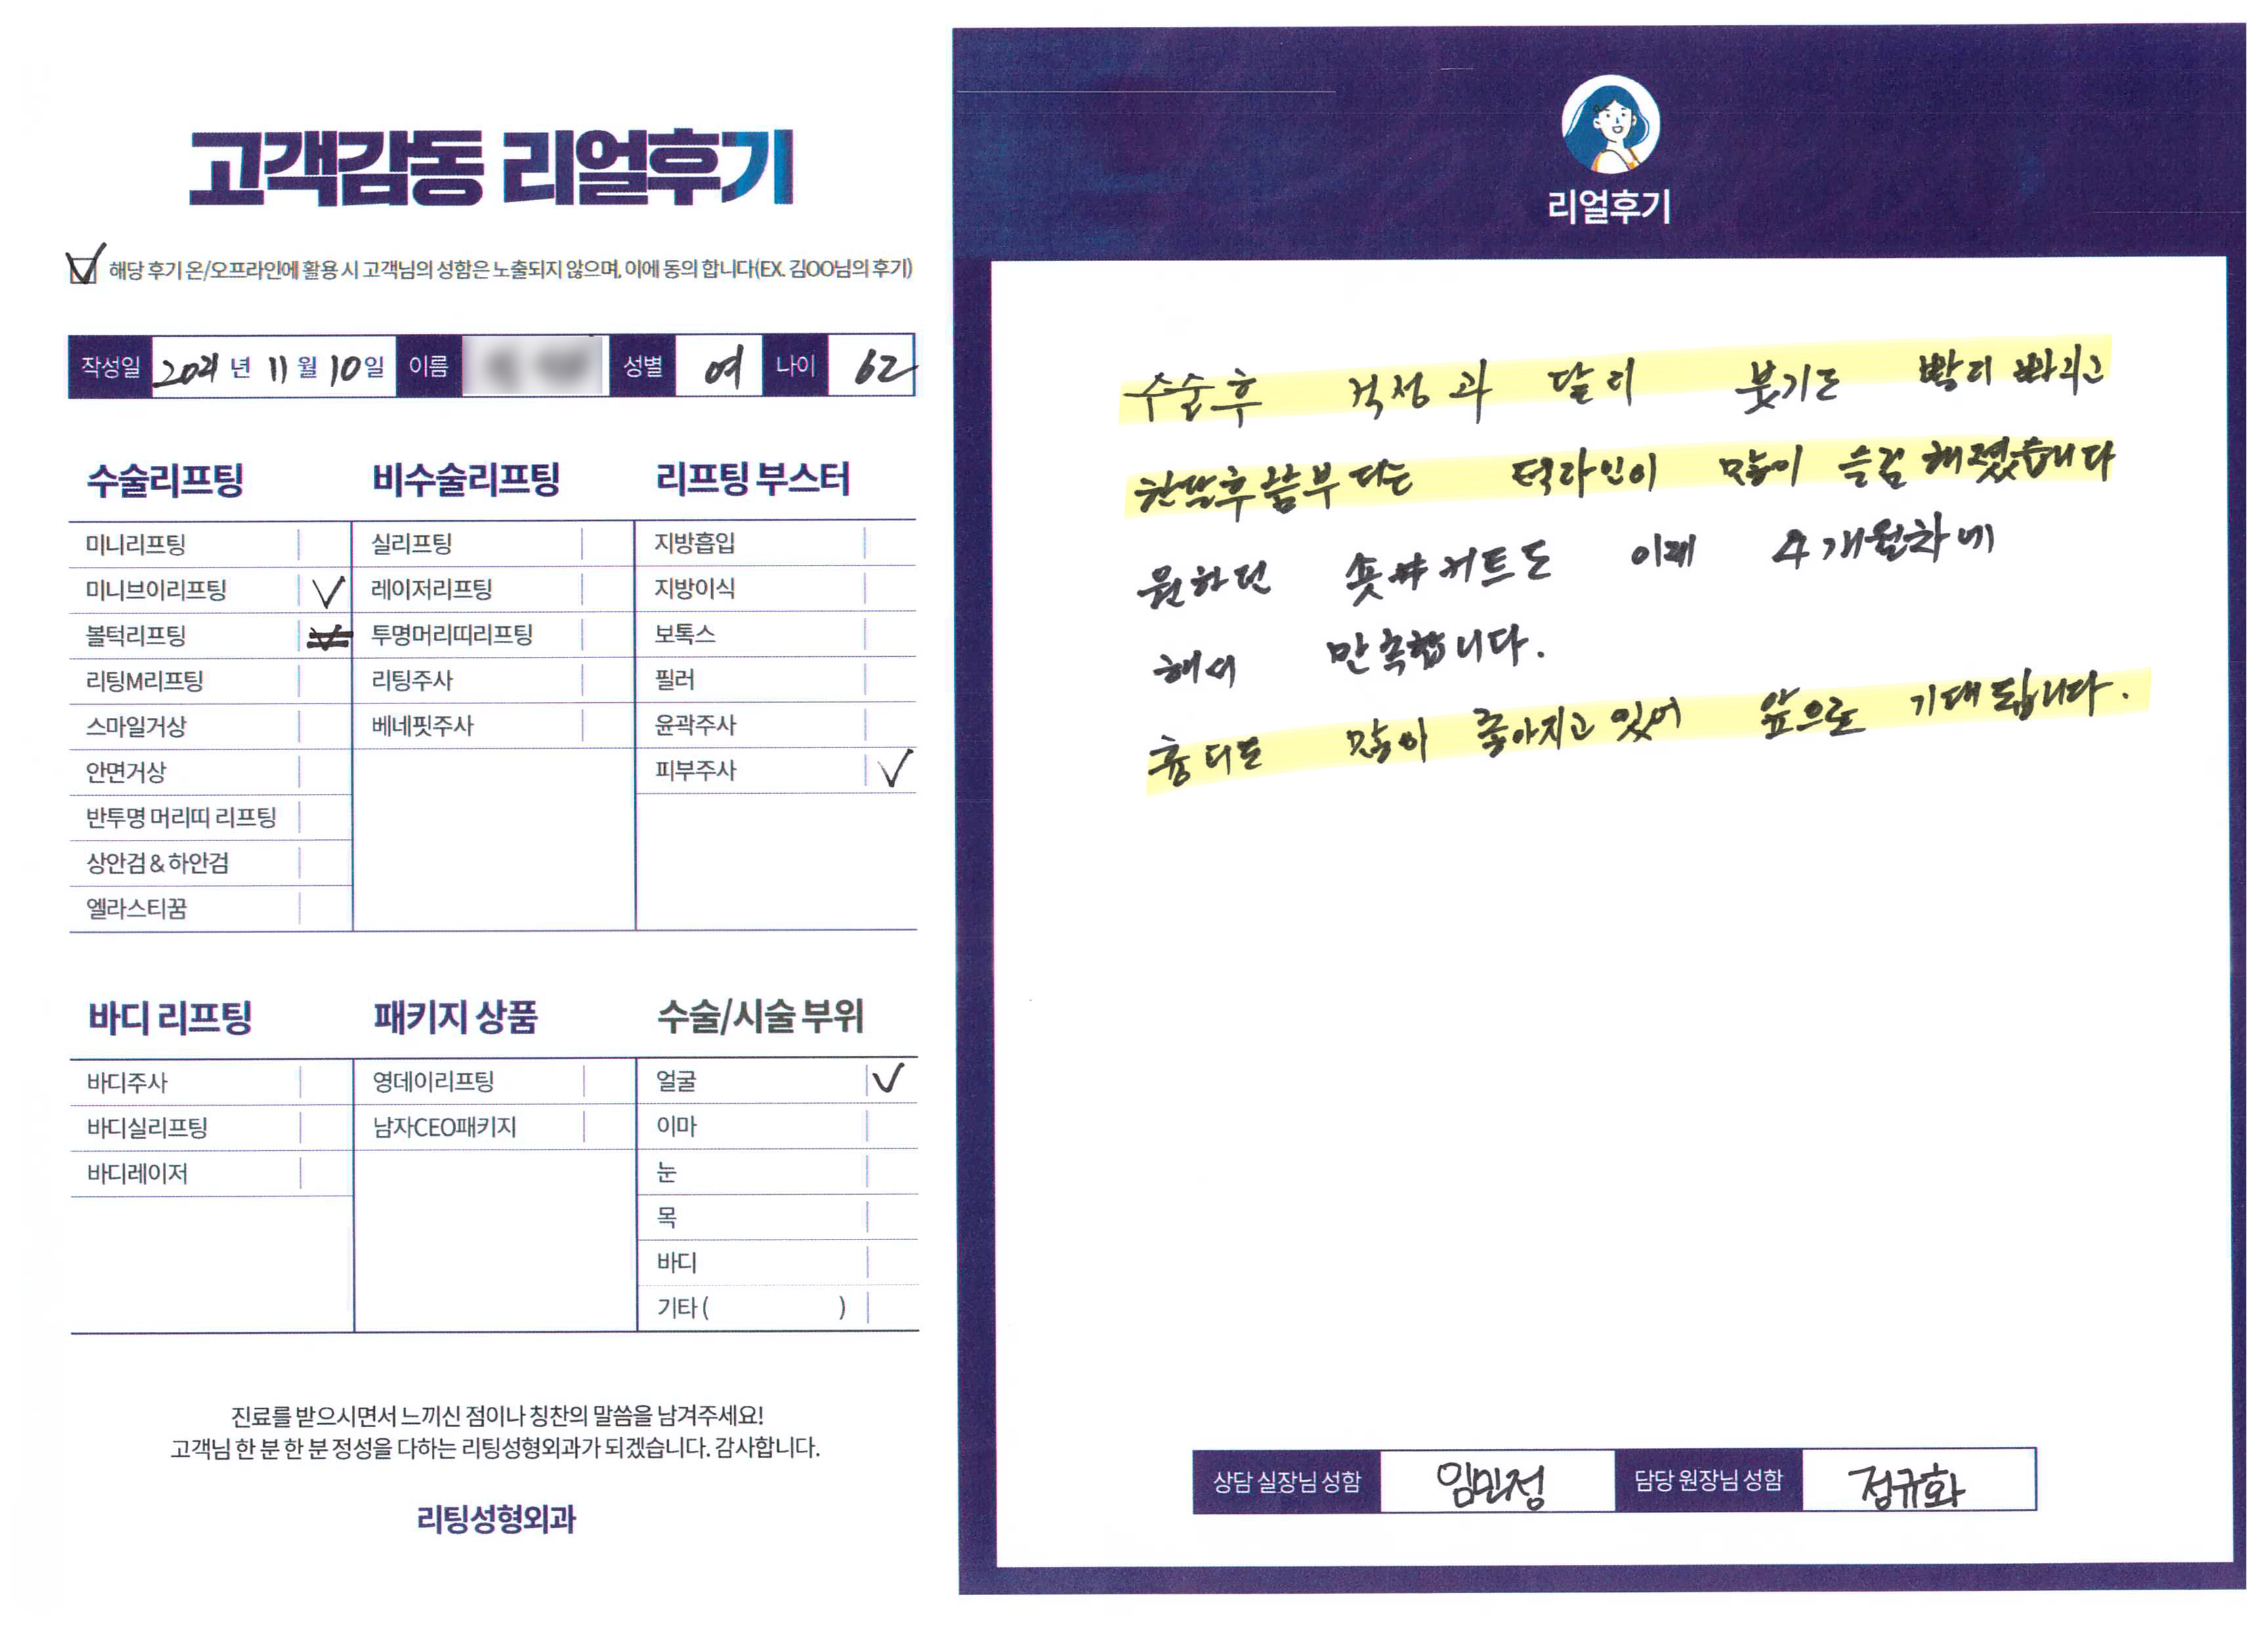 고객감동 리얼후기
해당 후기 온/오프라인에 활용 시 고객님의 성함은 노출되지 않으며, 이에 동의 합니다(EX. 김OO님의 후기)
작성일 2021년 11월 10일 이름 성별 여 나이 62
수술리프팅
미니리프팅
미니브이리프팅 ✓
볼턱리프팅
리팅M리프팅
스마일거상
안면거상
반투명 머리띠 리프팅
상안검 & 하안검
엘라스티꿈
비수술리프팅
실리프팅
레이저리프팅
투명머리띠리프팅
리팅주사
베네핏주사
리프팅 부스터
지방흡입
지방이식
보톡스
필러
윤곽주사
피부주사 ✓
바디 리프팅
바디주사
바디실리프팅
바디레이저
패키지 상품
영데이리프팅
남자CEO패키지
수술/시술 부위
얼굴 ✓
이마
눈
목
바디
기타 ( )
진료를 받으시면서 느끼신 점이나 칭찬의 말씀을 남겨주세요!
고객님 한 분 한 분 정성을 다하는 리팅성형외과가 되겠습니다. 감사합니다.
리팅성형외과
리얼후기
수술후 걱정과 달리 붓기도 빨리 빠지고
한달후쯤부터는 턱라인이 많이 슬림해졌습니다
원하던 숏커트도 이제 4개월차에
해서 만족합니다.
흉터도 많이 좋아지고 있어 앞으로 기대됩니다.
상담 실장님 성함 임민정 담당 원장님 성함 정규화